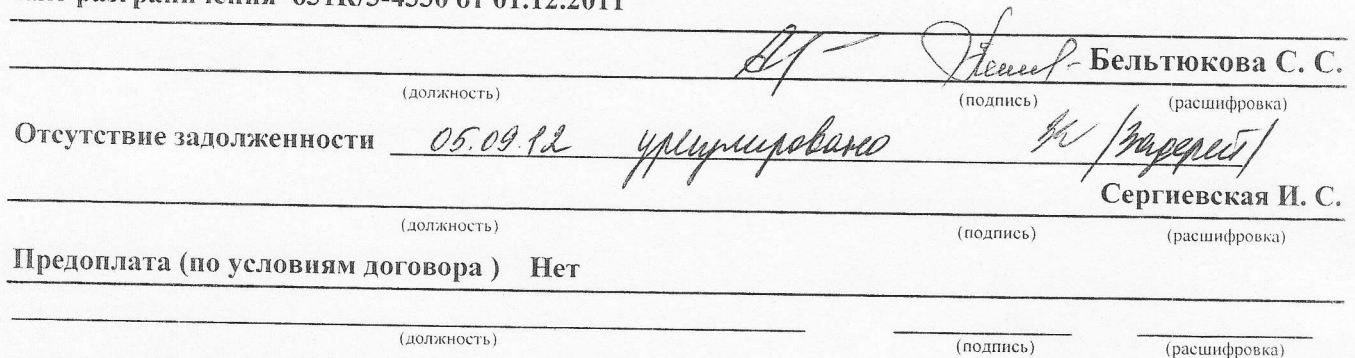 разграничения
от 01.12.2011
Бельтюкова С. С.
(должность) (подпись) (расшифровка)
Отсутствие задолженности 05.09.12 урегулировано /Задерей/
Сергиевская И. С.
(должность) (подпись) (расшифровка)
Предоплата (по условиям договора ) Нет
(должность) (подпись) (расшифровка)